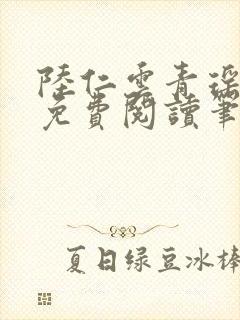 陸仁雲青瑤
免費閱讀筆
夏日绿豆冰棒